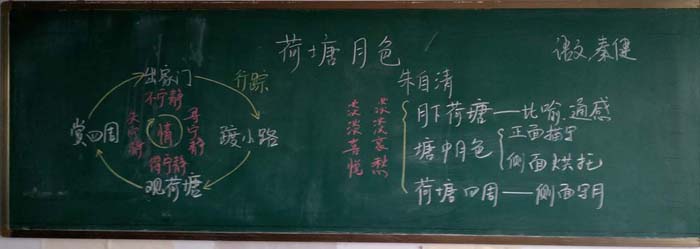 荷塘月色
朱自清
语文 秦健
出家门
行踪
不宁静
踱小路
寻宁静
情
得宁静
观荷塘
失宁静
赏四周
淡淡喜悦
淡淡哀愁
月下荷塘——比喻、通感
塘中月色
正面描写
侧面烘托
荷塘四周——侧面写月